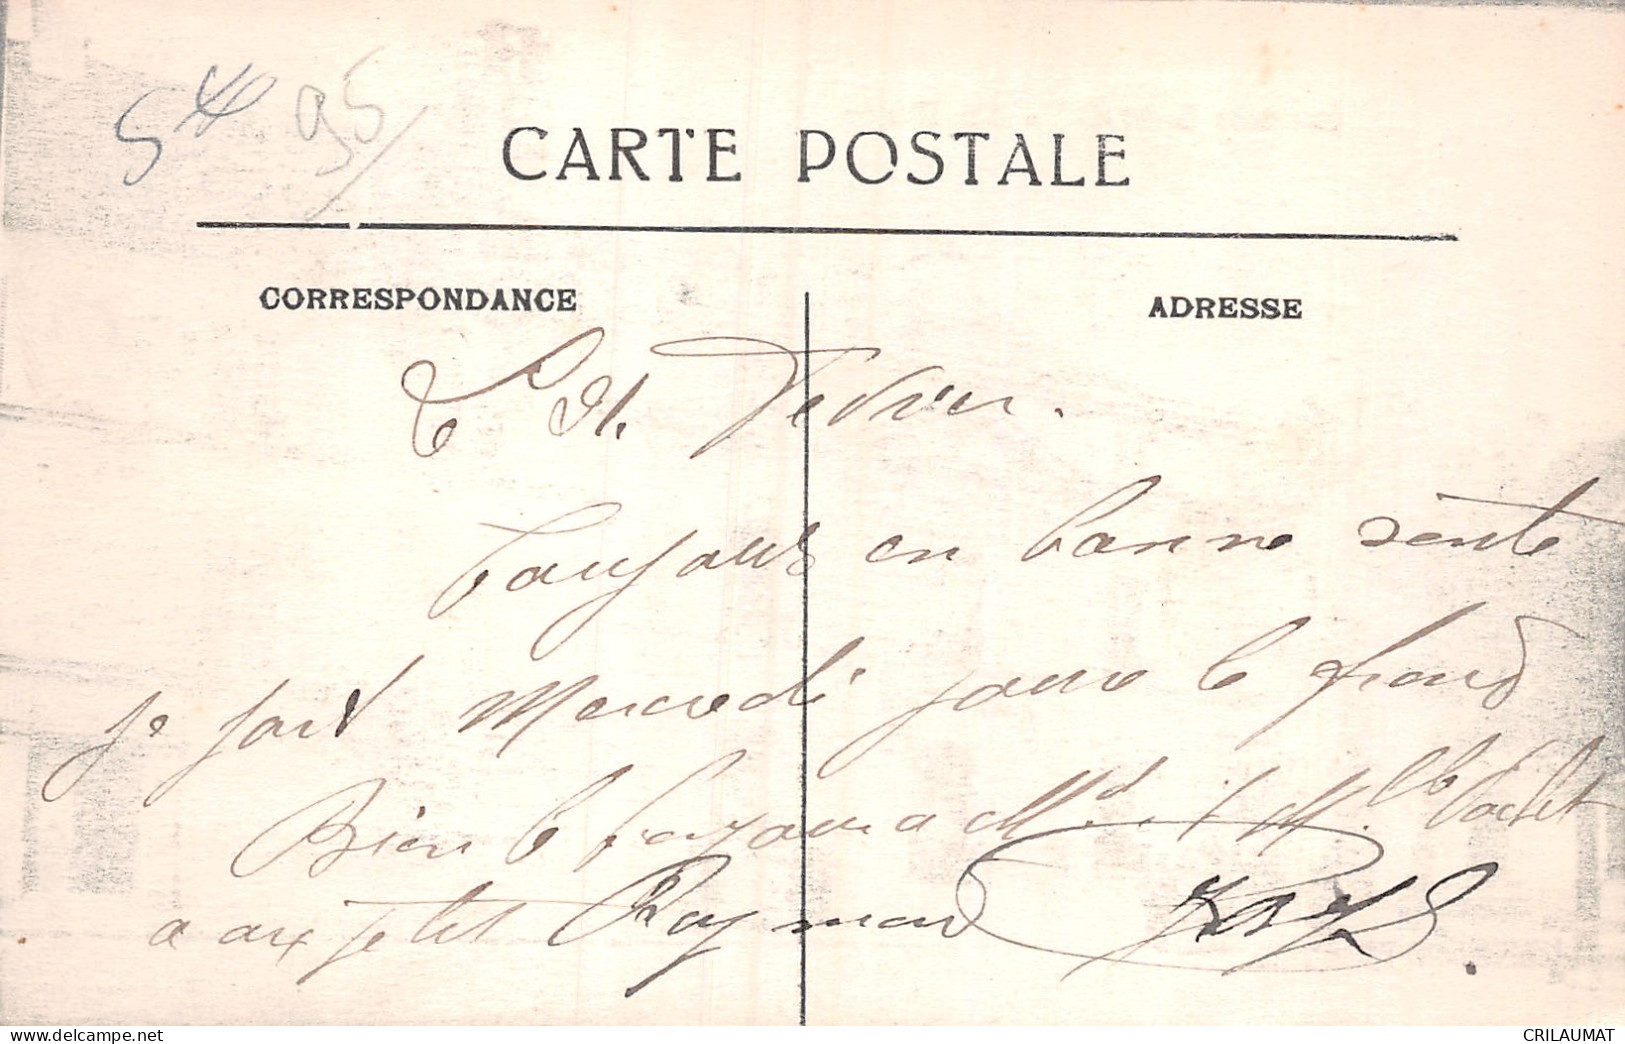 5 95
CARTE POSTALE
CORRESPONDANCE ADRESSE
Le 21. Fevrier.
Toujours en bonne sente
je part Mercredi pour le frond
Bien le bonjour a Md et Mlle
a aux petit Raymond
www.delcampe.net bourky
CRILAUMAT